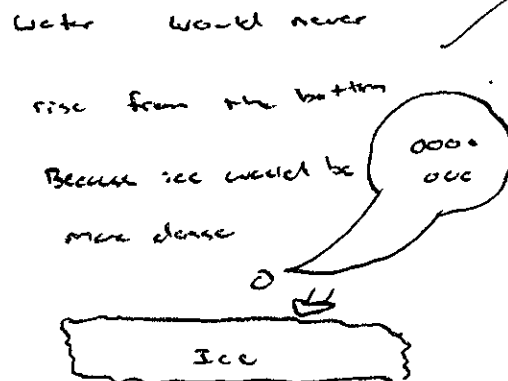 Water would never
rise from the bottom
Because ice would be
more dense
Ice